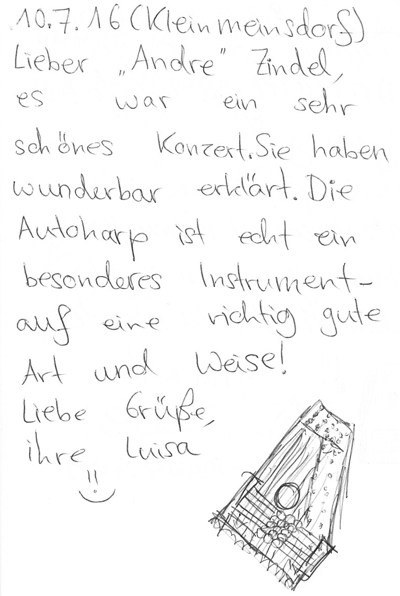 10.7.16 (Kleinmeinsdorf)
Lieber „Andre" Zindel,
es war ein sehr
schönes Konzert. Sie haben
wunderbar erklärt. Die
Autoharp ist echt ein
besonderes Instrument-
auf eine richtig gute
Art und Weise!
Liebe Grüße,
ihre Luisa